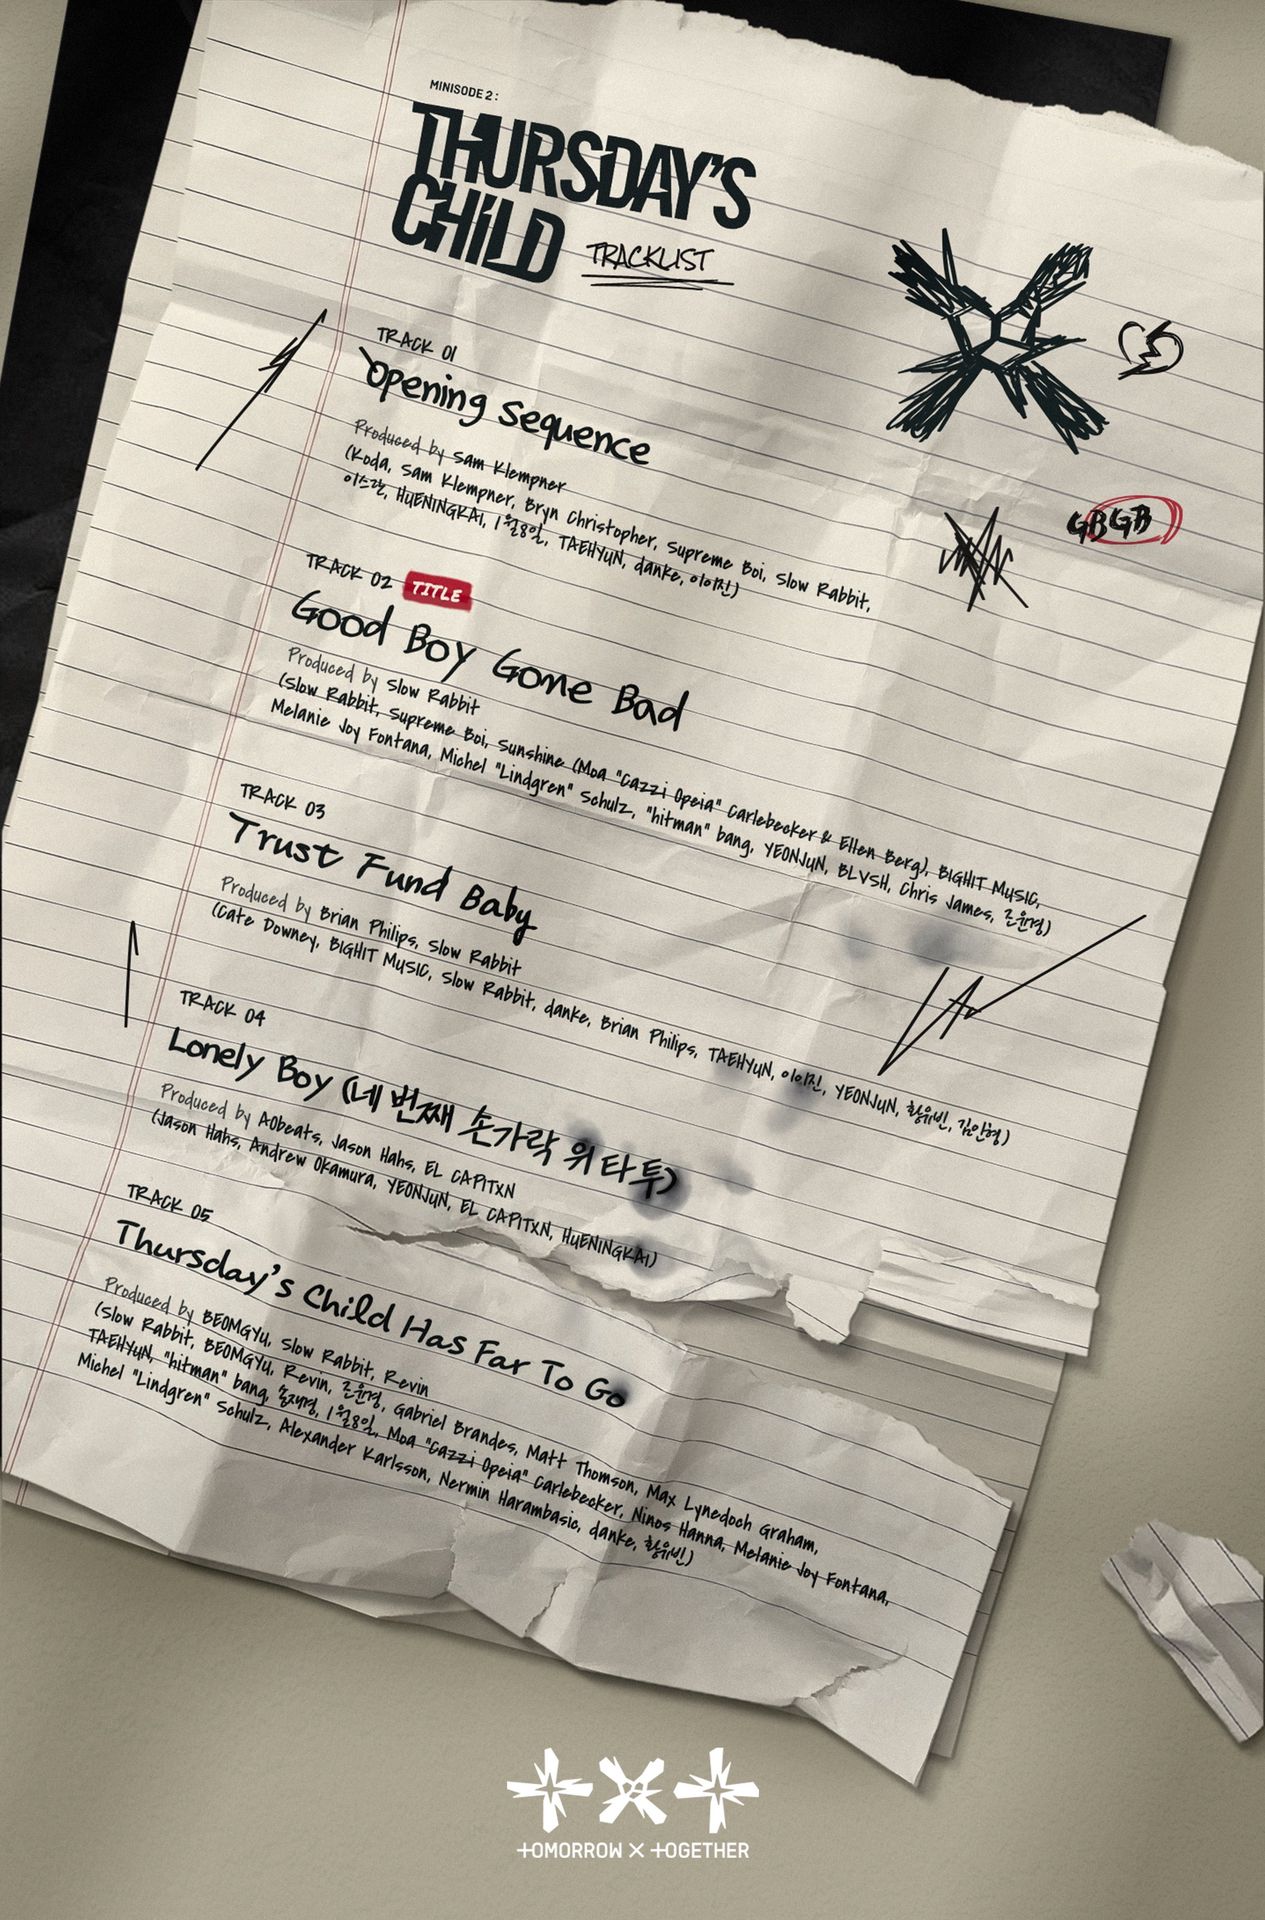 MINISODE 2:
THURSDAY'S
CHILD
TRACKLIST
TRACK 01
Opening Sequence
Produced by Sam Klempner
(Koda, Sam Klempner, Bryn Christopher, Supreme Boi, Slow Rabbit,
이스란, HUENINGKAI, 1월8일, TAEHYUN, danke, 이이진)
GBGB
TRACK 02 TITLE
Good Boy Gone Bad
Produced by Slow Rabbit
(Slow Rabbit, Supreme Boi, Sunshine (Moa "Cazzi Opeia" Carlebecker & Ellen Berg), BIGHIT MUSIC,
Melanie Joy Fontana, Michel "Lindgren" Schulz, "hitman" bang, YEONJUN, BLVSH, Chris James, 조윤경)
TRACK 03
Trust Fund Baby
Produced by Brian Philips, Slow Rabbit
(Cate Downey, BIGHIT MUSIC, Slow Rabbit, danke, Brian Philips, TAEHYUN, 이이진, YEONJUN, 황유빈, 김인형)
TRACK 04
Lonely Boy (네 번째 손가락 위 타투)
Produced by AObeats, Jason Hahs, EL CAPITXN
(Jason Hahs, Andrew Okamura, YEONJUN, EL CAPITXN, HUENINGKAI)
TRACK 05
Thursday's Child Has Far To Go
Produced by BEOMGYU, Slow Rabbit, Revin
(Slow Rabbit, BEOMGYU, Revin, 조윤경, Gabriel Brandes, Matt Thomson, Max Lynedoch Graham,
TAEHYUN, "hitman" bang, 송재경, 1월8일, Moa "Cazzi Opeia" Carlebecker, Ninos Hanna, Melanie Joy Fontana,
Michel "Lindgren" Schulz, Alexander Karlsson, Nermin Harambasic, danke, 황유빈)
TOMORROW X TOGETHER